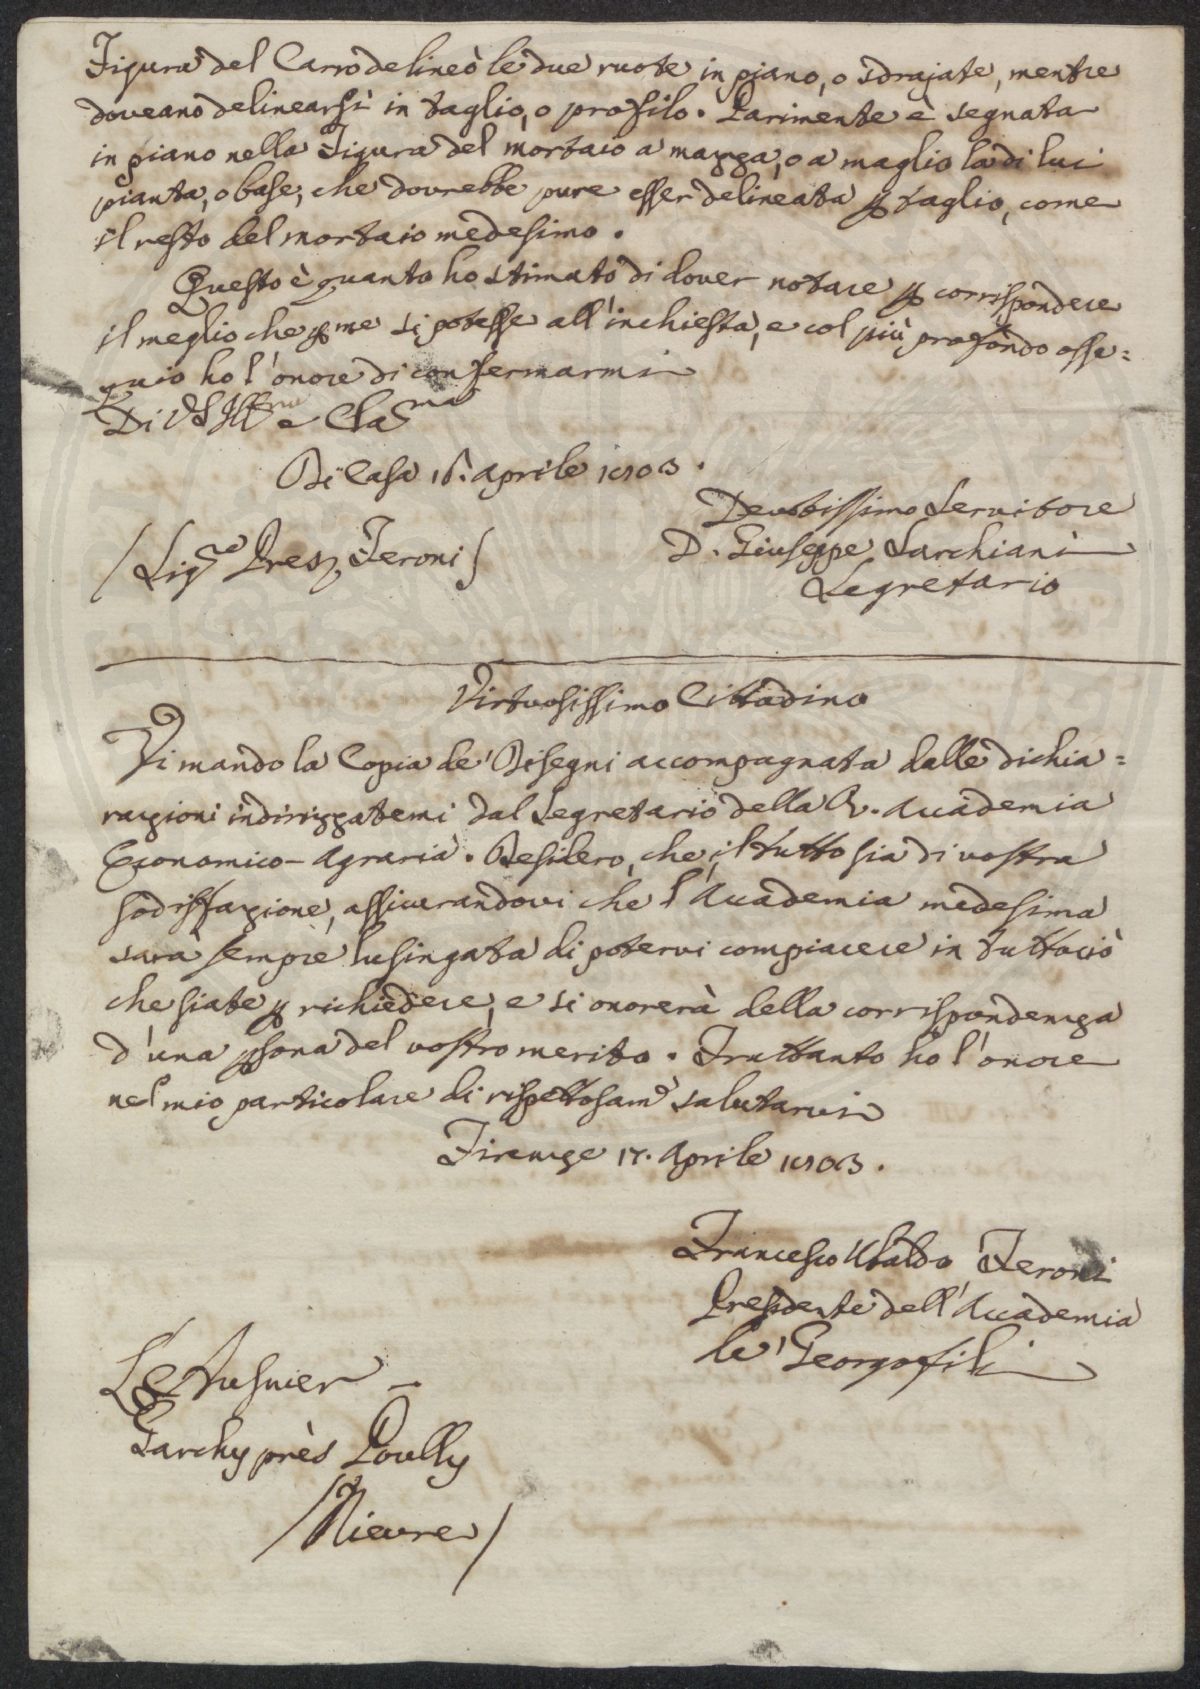 Figura del Carro delineò le due ruote in piano, o sdrajate, mentre
doveano delinearsi in taglio, o profilo. Parimente è segnata
in piano nella Figura del mortaio a mazza, o a maglio la di lui
pianta, o base, che dovrebbe pure esser delineata p taglio, come
il resto del mortaio medesimo.
Questo è quanto ho stimato di dover notare p corrispondere
il meglio che p me si potesse all'inchiesta, e col più profondo osse=
quio ho l'onore di confermarmi
Di VS Illma e Clama
Di Casa 16. Aprile 1803.
Devotissimo Servitore
D. Giuseppe Sarchiani
Segretario
/Sigre Pres. Feroni/
Virtuosissimo Cittadino
Vi mando la Copia de' Disegni accompagnata dalle dichia=
razioni indirizzatemi dal Segretario della R. Accademia
Economico-Agraria. Desidero, che il tutto sia di vostra
sodisfazione, assicurandovi che l'Accademia medesima
sarà sempre lusingata di potervi compiacere in tuttociò
che siate p richiedere, e si onorerà della corrispondenza
d'una psona del vostro merito. Fruttanto ho l'onore
nel mio particolare di rispettosame salutarvi
Firenze 17. Aprile 1803.
Francesco Ubaldo Feroni
Presidente dell'Accademia
de' Georgofili
Garchy près Pouilly
/Nievre/